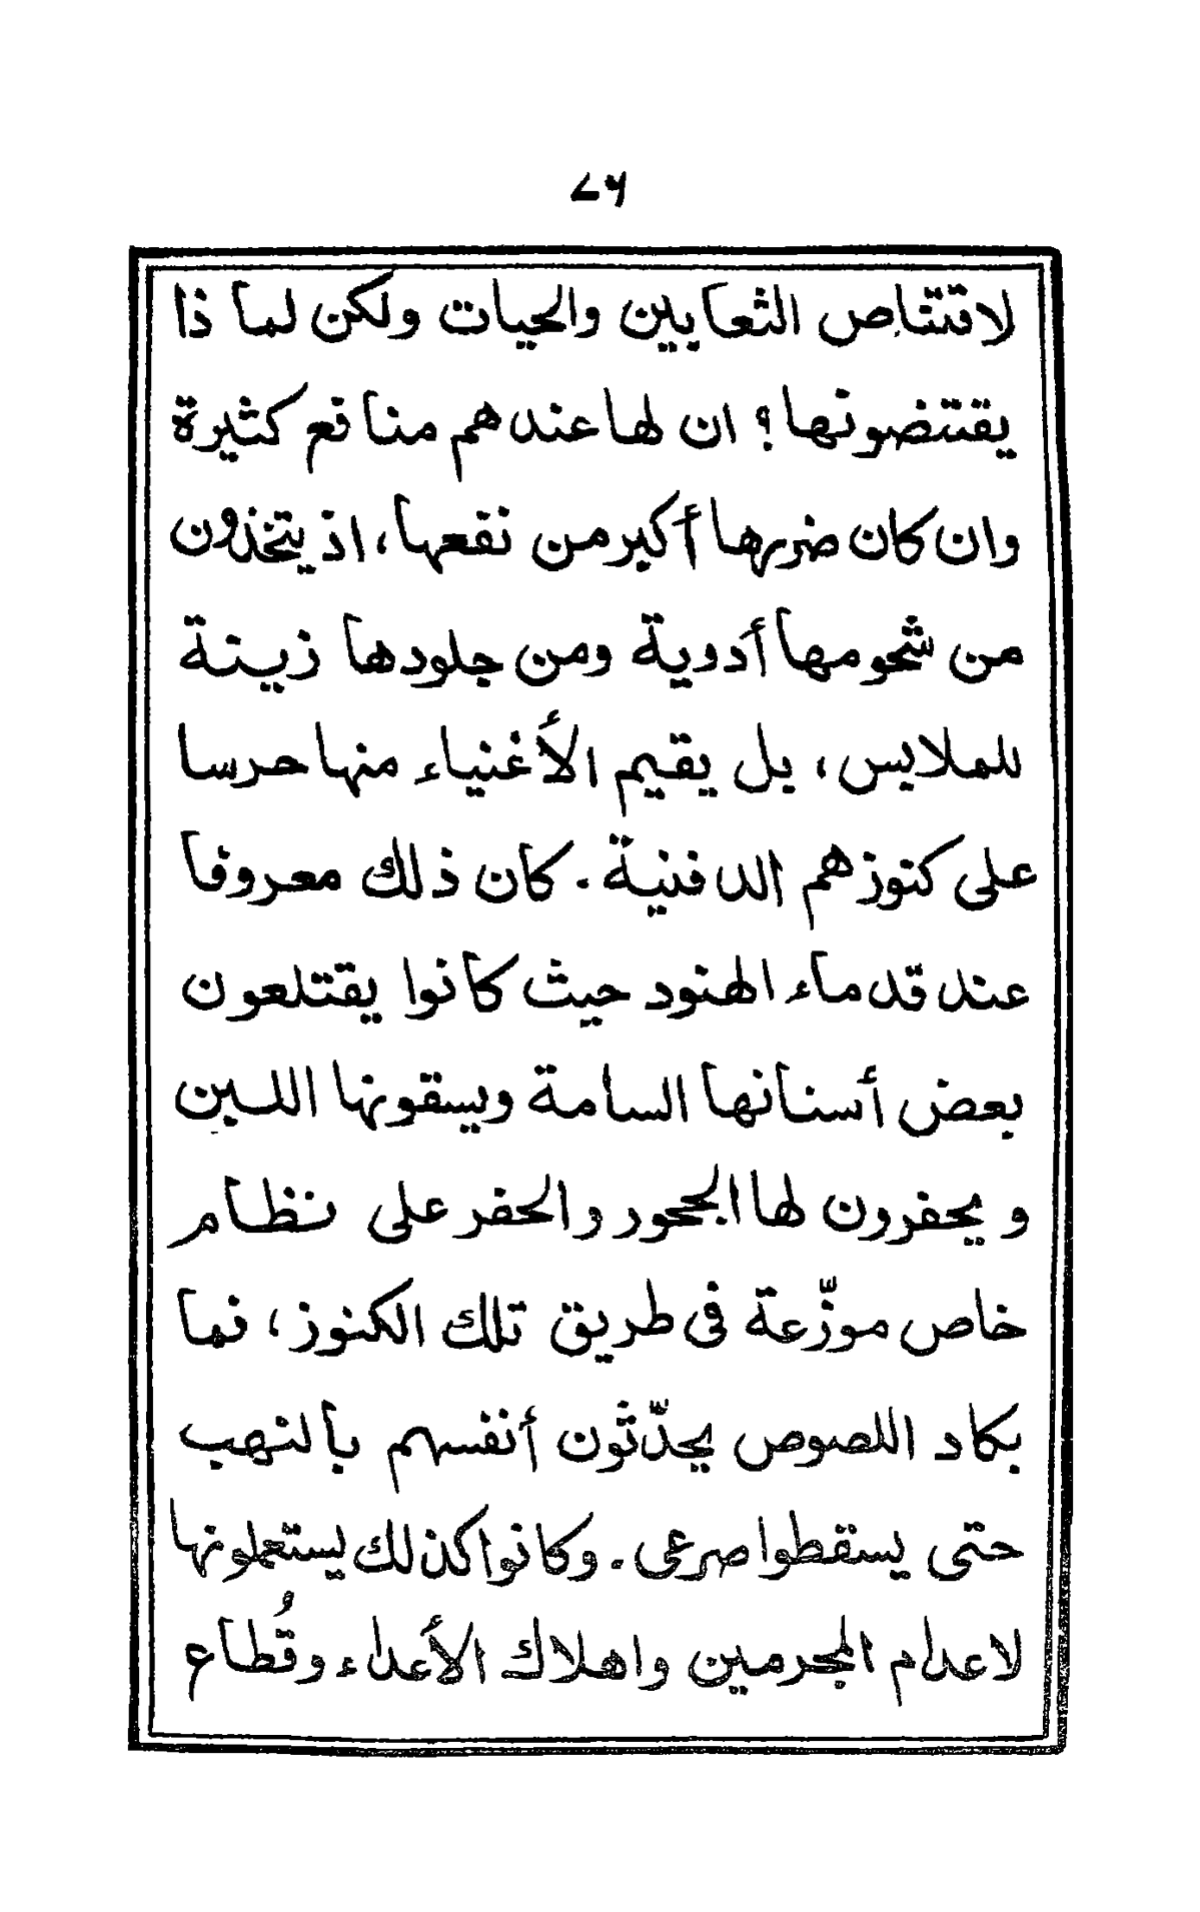 لاقتناص الثعابين والحيات ولكن لما ذا
يقتنصونها؟ ان لها عندهم منافع كثيرة
وان كان ضررها أكبر من نفعها، اذ يتخذون
من شحومها أدوية ومن جلودها زينة
للملابس، بل يقيم الأغنياء منها حرسا
على كنوزهم الدفنية. كان ذلك معروفا
عند قدماء الهنود حيث كانوا يقتلعون
بعض أسنانها السامة ويسقونها اللبن
ويحفرون لها الجحور والحفر على نظام
خاص موزّعة فى طريق تلك الكنوز، فما
يكاد اللصوص يحدّثون أنفسهم بالنهب
حتى يسقطوا صرعى. وكانوا كذلك يستعملونها
لاعدام المجرمين واهلاك الأعداء وقُطاع